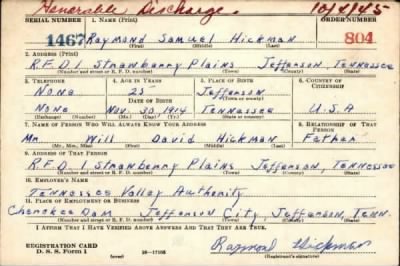 Honorable Discharge. 10/4/45
SERIAL NUMBER 1. NAME (Print) ORDER NUMBER
1467 Raymond Samuel Hickman 804
(First) (Middle) (Last)
2. ADDRESS (Print)
R.F.D 1 Strawberry Plains Jefferson, Tennessee
(Number and street or R. F. D. number) (Town) (County) (State)
3. TELEPHONE 4. AGE IN YEARS 5. PLACE OF BIRTH 6. COUNTRY OF CITIZENSHIP
None 25 Jefferson
DATE OF BIRTH (Town or county)
None Nov. 20 1914 Tennessee U.S.A
(Exchange) (Number) (Mo.) (Day) (Yr.) (State or country)
7. NAME OF PERSON WHO WILL ALWAYS KNOW YOUR ADDRESS 8. RELATIONSHIP OF THAT PERSON
Mr. Will David Hickman Father
(Mr., Mrs., Miss) (First) (Middle) (Last)
9. ADDRESS OF THAT PERSON
R.F.D. 1 Strawberry Plains Jefferson, Tennessee
(Number and street or R. F. D. number) (Town) (County) (State)
10. EMPLOYER'S NAME
Tennessee Valley Authority
11. PLACE OF EMPLOYMENT OR BUSINESS
Cherokee Dam Jefferson City, Jefferson, Tenn.
(Number and street or R. F. D. number) (Town) (County) (State)
I AFFIRM THAT I HAVE VERIFIED ABOVE ANSWERS AND THAT THEY ARE TRUE.
REGISTRATION CARD
D. S. S. Form 1 (over) Raymond Hickman